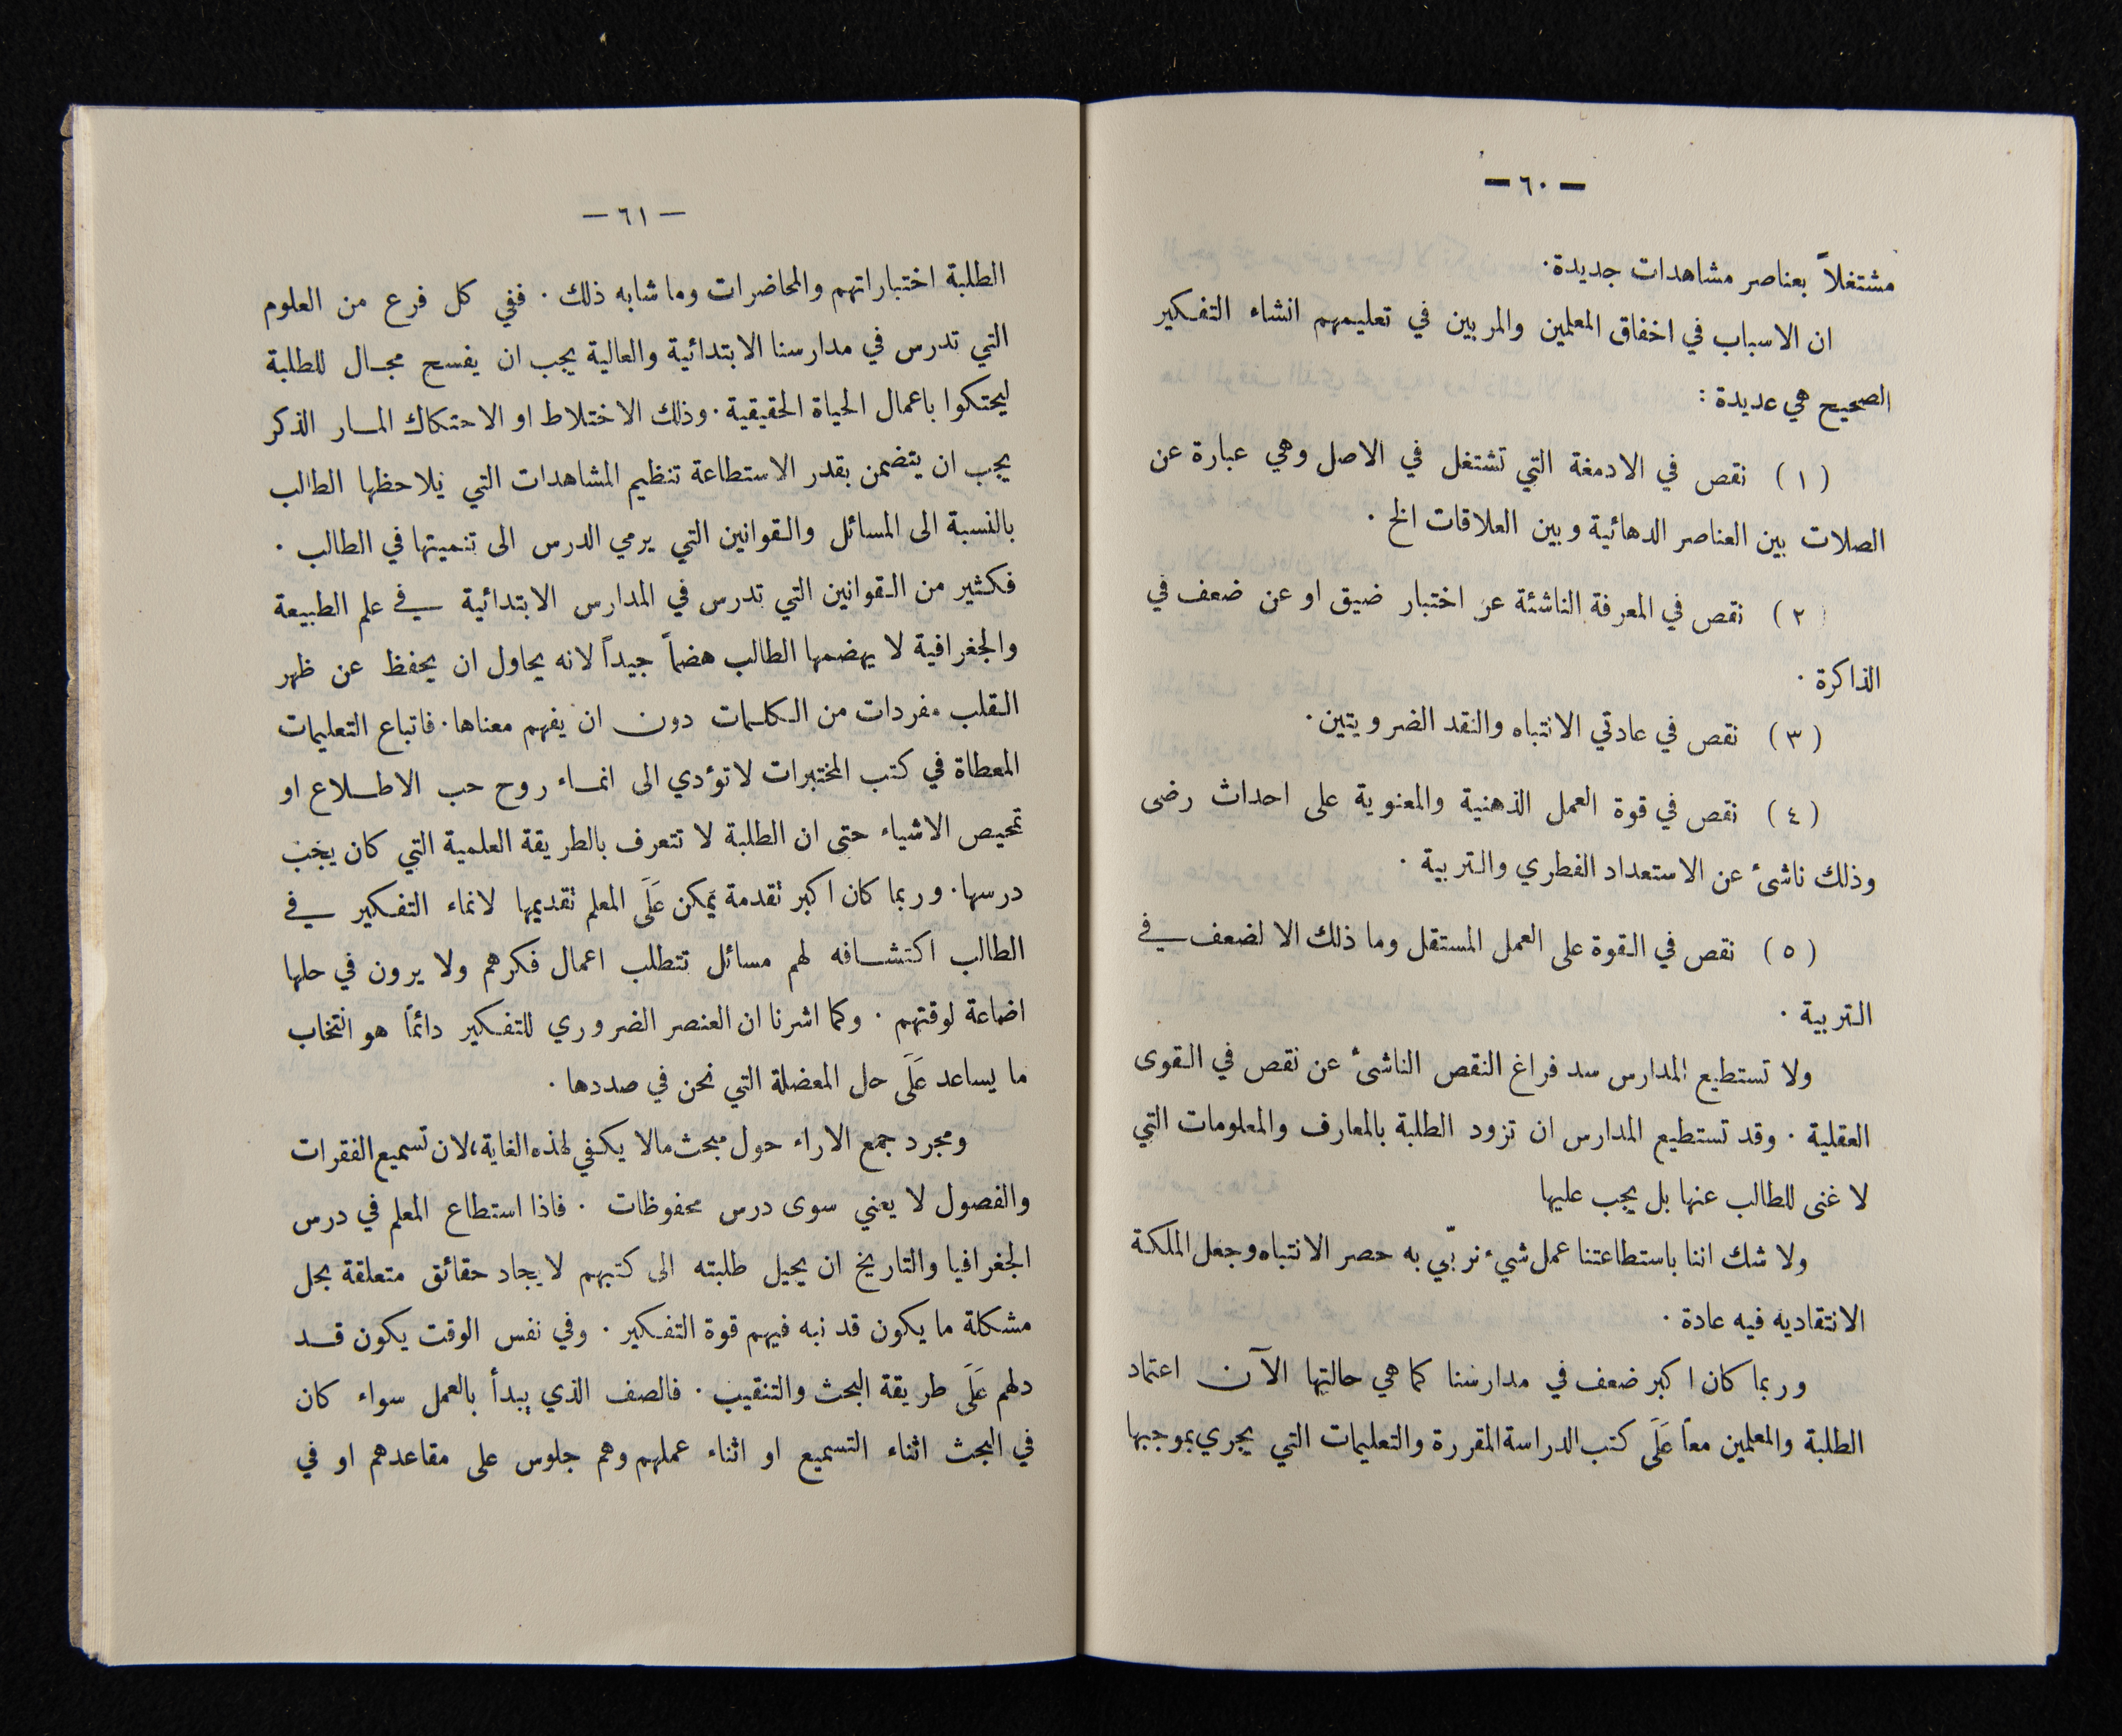 — ٦٠ —
مشتغلاً بعناصر مشاهدات جديدة.
ان الاسباب في اخفاق المعلمين والمربين في تعليمهم انشاء التفكير
الصحيح هي عديدة :
( ١ ) نقص في الادمغة التي تشتغل في الاصل وهي عبارة عن
الصلات بين العناصر الدهائية وبين العلاقات الخ .
( ٢ ) نقص في المعرفة الناشئة عن اختبار ضيق او عن ضعف في
الذاكرة .
( ٣ ) نقص في عادتي الانتباه والنقد الضرويتين.
( ٤ ) نقص في قوة العمل الذهنية والمعنوية على احداث رضى
وذلك ناشئ عن الاستعداد الفطري والتربية .
( ٥ ) نقص في القوة على العمل المستقل وما ذلك الا لضعف في
التربية .
ولا تستطيع المدارس سد فراغ النقص الناشئ عن نقص في القوى
العقلية . وقد تستطيع المدارس ان تزود الطلبة بالمعارف والمعلومات التي
لا غنى للطالب عنها بل يجب عليها
ولا شك اننا باستطاعتنا عمل شيء نربّي به حصر الانتباه وجعل الملكة
الانتقاديه فيه عادة .
وربما كان اكبر ضعف في مدارسنا كما هي حالتها الآن اعتماد
الطلبة والمعلمين معاً عَلَى كتب الدراسة المقررة والتعليمات التي يجري بموجبها
— ٦١ —
الطلبة اختباراتهم والمحاضرات وما شابه ذلك . ففي كل فرع من العلوم
التي تدرس في مدارسنا الابتدائية والعالية يجب ان يفسح مجال للطلبة
ليحتكوا باعمال الحياة الحقيقية . وذلك الاختلاط او الاحتكاك المار الذكر
يجب ان يتضمن بقدر الاستطاعة تنظيم المشاهدات التي يلاحظها الطالب
بالنسبة الى المسائل والقوانين التي يرمي الدرس الى تنميتها في الطالب .
فكثير من القوانين التي تدرس في المدارس الابتدائية في علم الطبيعة
والجغرافية لا يهضمها الطالب هضماً جيداً لانه يحاول ان يحفظ عن ظهر
القلب مفردات من الكلمات دون ان يفهم معناها . فاتباع التعليمات
المعطاة في كتب المختبرات لا تؤدي الى انماء روح حب الاطلاع او
تمحيص الاشياء حتى ان الطلبة لا تتعرف بالطريقة العلمية التي كان يجب
درسها . وربما كان اكبر تقدمة يمكن عَلَى المعلم تقديمها لانماء التفكير في
الطالب اكتشافه لهم مسائل تتطلب اعمال فكرهم ولا يرون في حلها
اضاعة لوقتهم . وكما اشرنا ان العنصر الضروري للتفكير دائماً هو انتخاب
ما يساعد عَلَى حل المعضلة التي نحن في صددها .
ومجرد جمع الاراء حول مبحث مالا يكفي لهذه الغاية، لان تسميع الفقرات
والفصول لا يعني سوى درس محفوظات . فاذا استطاع المعلم في درس
الجغرافيا والتاريخ ان يحيل طلبته الى كتبهم لايجاد حقائق متعلقة بحل
مشكلة ما يكون قد نبه فيهم قوة التفكير . وفي نفس الوقت يكون قد
دلهم عَلَى طريقة البحث والتنقيب . فالصف الذي يبدأ بالعمل سواء كان
في البحث اثناء التسميع او اثناء عملهم وهم جلوس على مقاعدهم او في